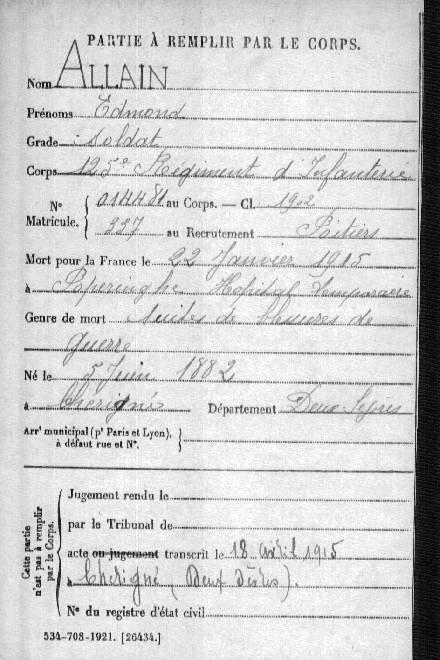 PARTIE À REMPLIR PAR LE CORPS.
Nom ALLAIN
Prénoms Edmond
Grade Soldat
Corps 125e Régiment d'Infanterie
N° Matricule. { 014481 au Corps. — Cl. 1902
227 au Recrutement Poitiers
Mort pour la France le 22 Janvier 1915
à Poperinghe Hôpital Temporaire
Genre de mort Suites de blessures de
guerre
Né le 5 Juin 1882
à Chérigné Département Deux Sèvres
Arrt municipal (pr Paris et Lyon), à défaut rue et N°. }
Cette partie n'est pas à remplir par le Corps.
Jugement rendu le
par le Tribunal de
acte ou jugement transcrit le 18 avril 1915
à Chérigné (Deux Sèvres).
N° du registre d'état civil
534-708-1921. [26434.]